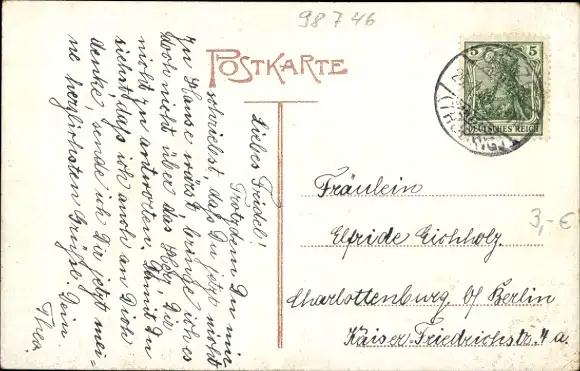 98746
POSTKARTE
5 5
DEUTSCHES REICH
Liebes Friedel!
Trotzdem Du mir
schriebst, daß Du jetzt nicht
zu Hause wärst, bringe ich es
doch nicht über das Herz, Dir
nicht zu antworten. Damit Du
siehst daß ich auch an Dich
denke, sende ich Dir jetzt mei-
ne herzlichsten Grüße. Deine
Thea.
Fräulein
Elfride Eichholz
Charlottenburg b/ Berlin
Kaiser-Friedrichstr. 4 a.
3,- €